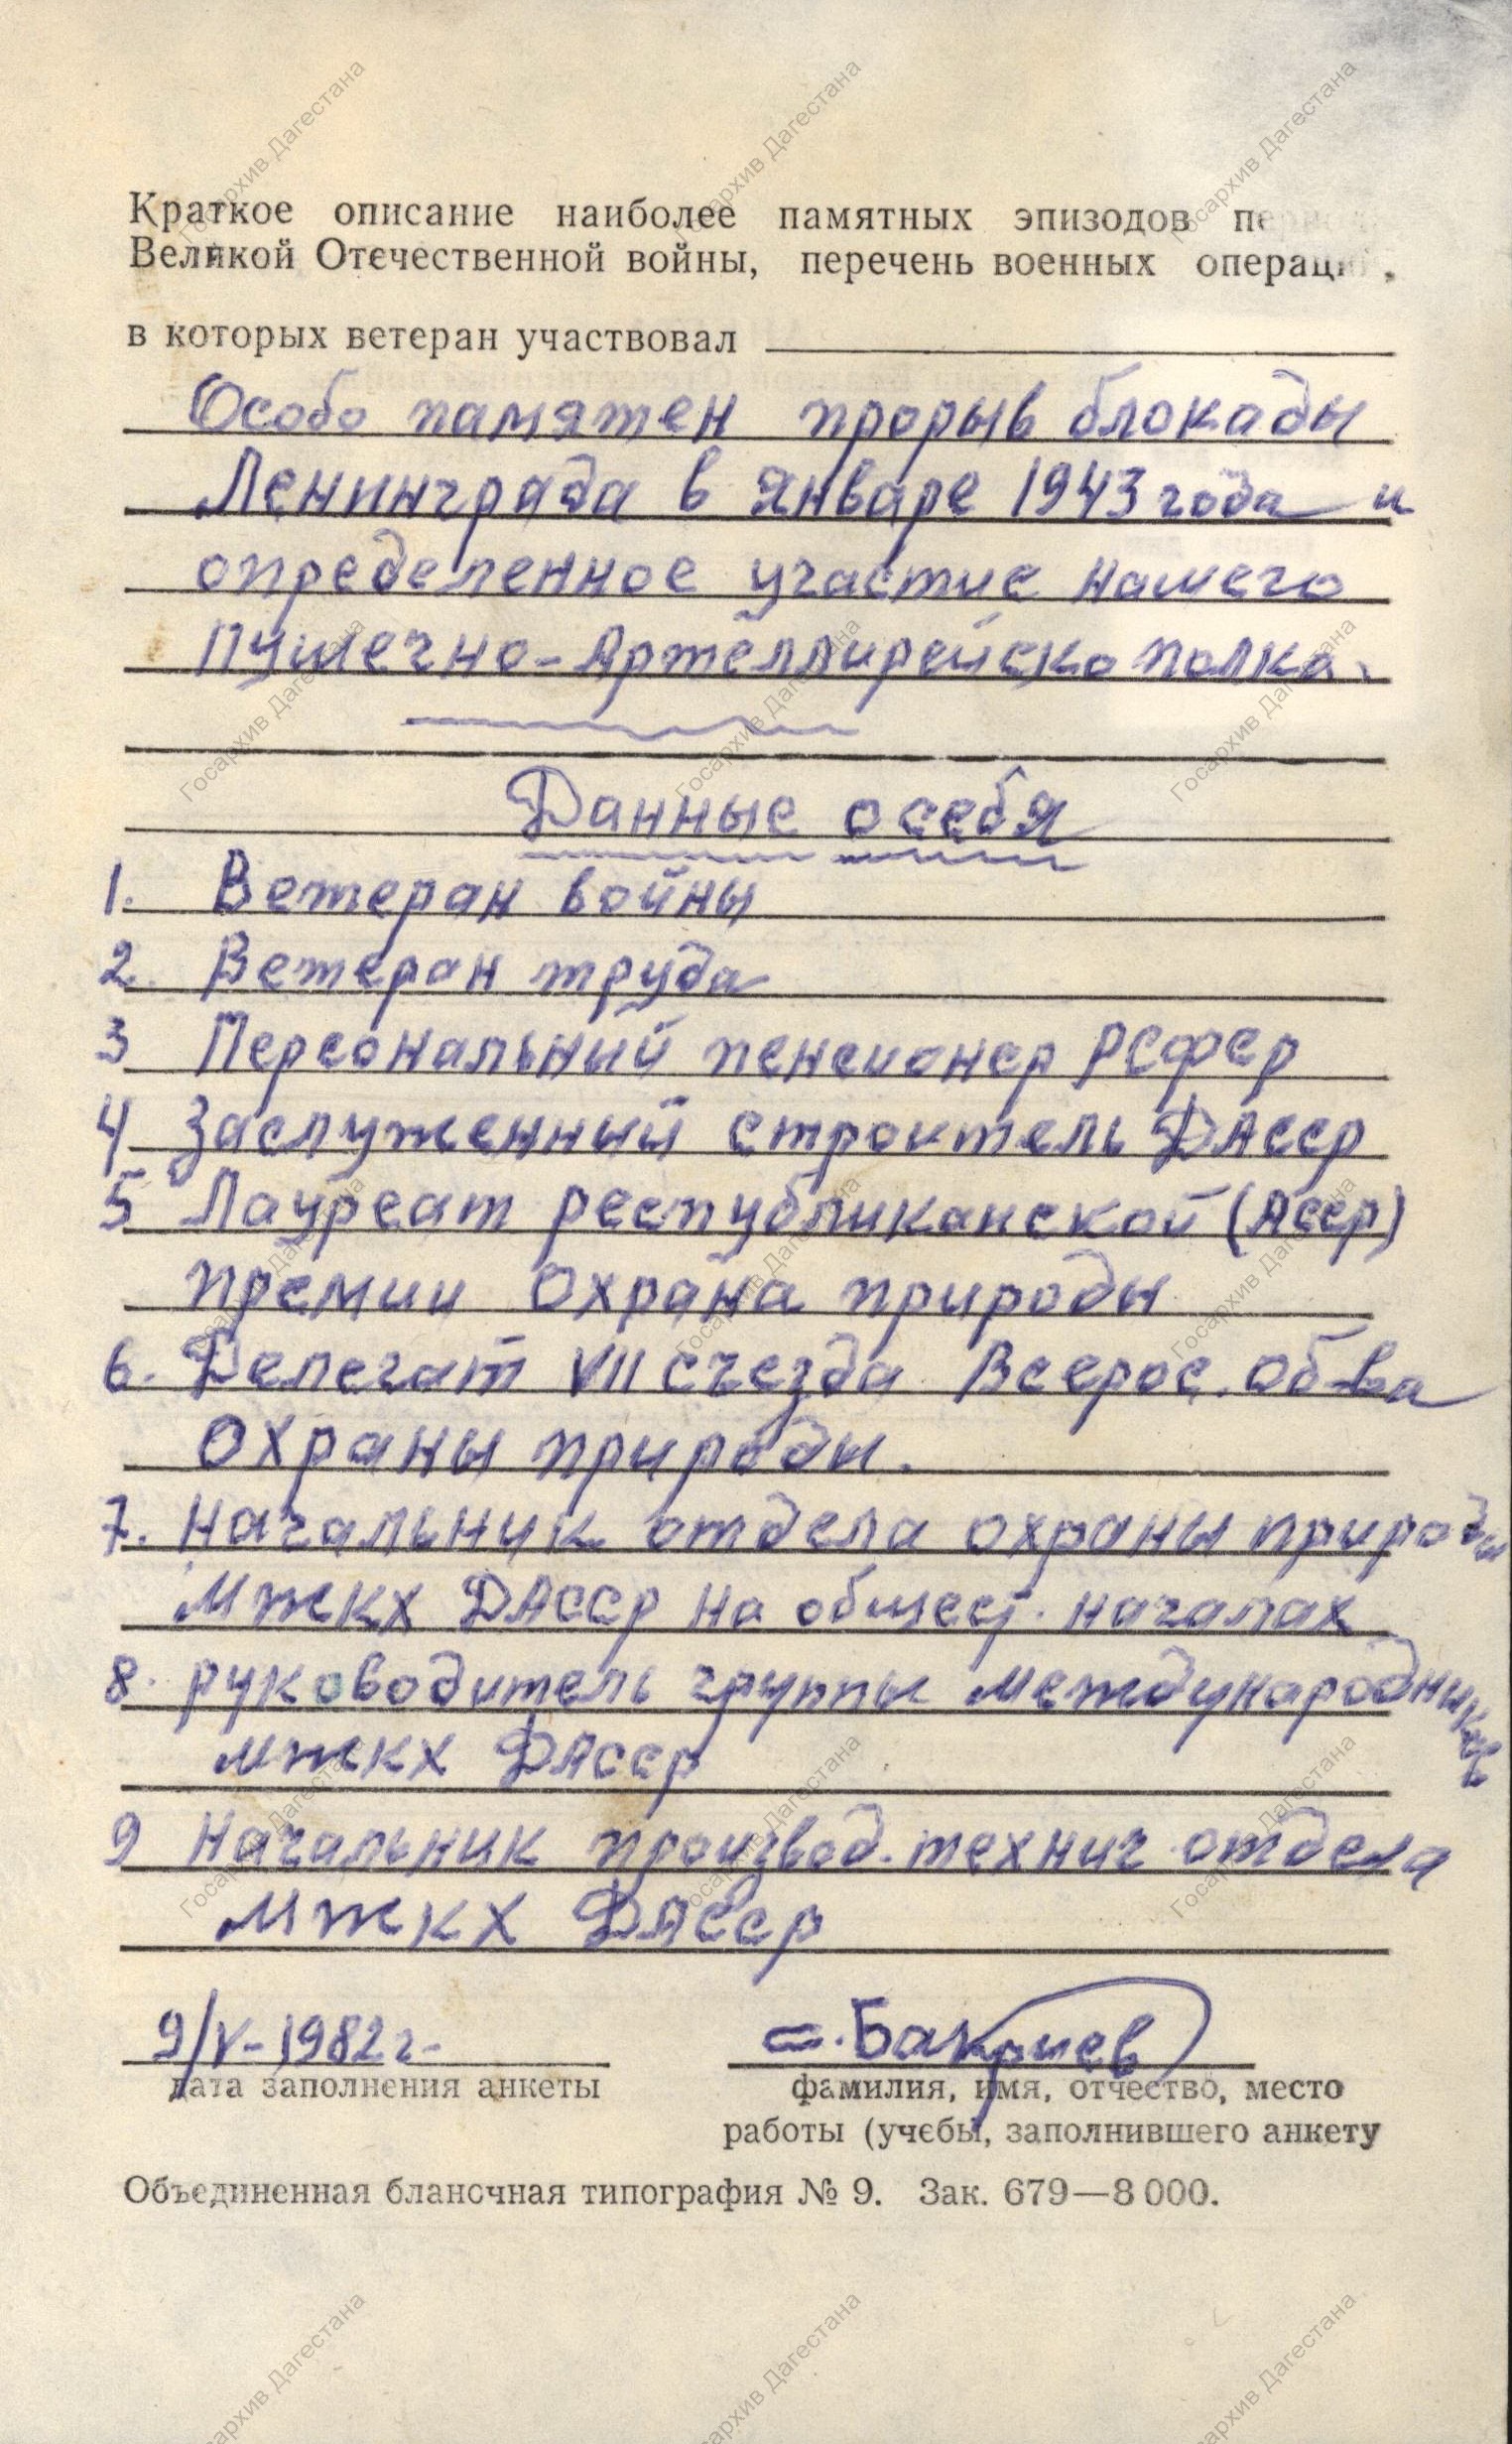 Краткое описание наиболее памятных эпизодов период
Великой Отечественной войны, перечень военных операций,
в которых ветеран участвовал
Особо памятен прорыв блокады
Ленинграда в январе 1943 года и
определенное участие нашего
Пушечно-Артеллирейско полка.
Данные о себя
1. Ветеран войны
2. Ветеран труда
3 Персональный пенсионер РСФСР
4 Заслуженный строитель ДАССР
5 Лауреат республиканской (АССР)
премии Охрана природы
6. Делегат VII съезда Всерос. об-ва
охраны природы.
7. Начальник отдела охраны природы
МЖКХ ДАССР на общест. началах
8. руководитель группы международников
МЖКХ ДАССР
9 Начальник производ. технич отдела
МЖКХ ДАССР
9/V-1982г. Бакриев
дата заполнения анкеты фамилия, имя, отчество, место
работы (учебы, заполнившего анкету
Объединенная бланочная типография № 9. Зак. 679—8 000.
Госархив Дагестана